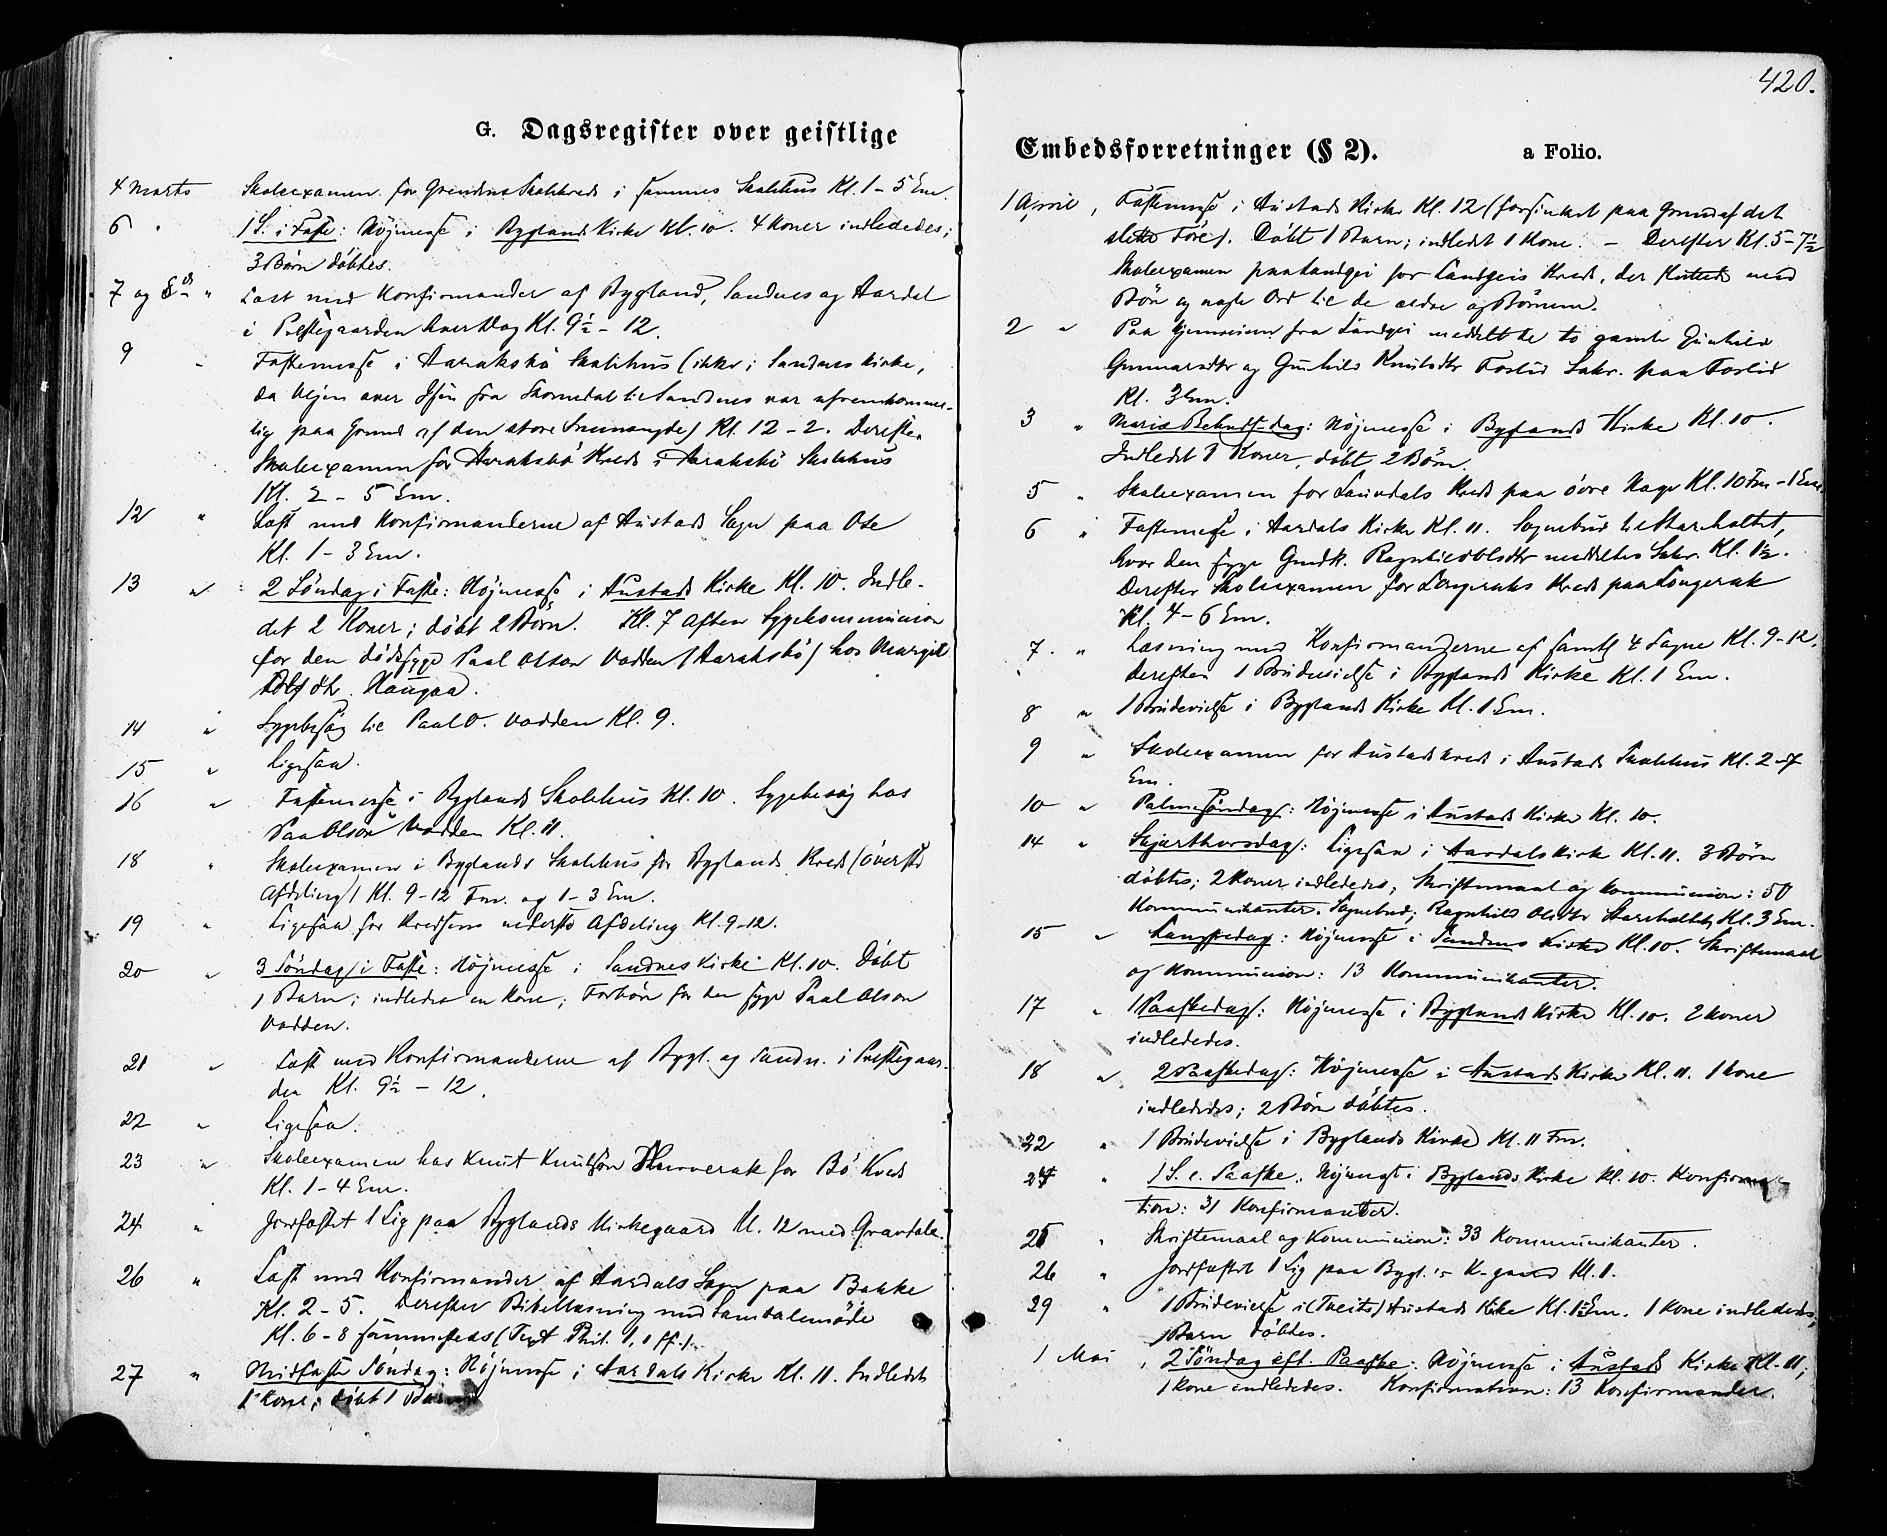 420.
G. Dagsregister over geistlige
4 Marts Skoleexamen for Grendens Skolekreds i sammes Skolehus Kl. 1 - 5 Em.
6 " 1 S. i Faste: Höjmesse i Byglands Kirke Kl. 10. 4 Koner indlededes;
3 Börn döbtes.
7 og 8de " Læst med Konfirmander af Bygland, Sandnes og Aardal
i Prestegaarden hver Dag Kl. 9½ - 12.
9 " Fastemesse i Aaraksbö Skolehus (ikke i Sandnes Kirke,
da Vejen over Isen fra Skomedal til Sandnes var ufremkomme-
lig paa Grund af den store Snemængde) Kl. 12 - 2. Derefter
Skoleexamen for Aaraksbö Kreds i Aaraksbö Skolehus
Kl. 2 - 5 Em.
12 " Læst med Konfirmanderne af Austads Sogn paa Ose
Kl. 1 - 3 Em.
13 " 2 Söndag i Faste: Höjmesse i Austads Kirke Kl. 10. Indle-
det 2 Koner; döbt 2 Börn. Kl. 7 Aften Sygekommunion
for den dödssyge Paal Olson Vadden (Aaraksbö) hos Margit
Haugaa.
14 " Sygebesög til Paal O. Vadden Kl. 9.
15 " Ligesaa.
16 " Fastemesse i Byglands Skolehus Kl. 10. Sygebesög hos
Paal Olson Vadden Kl. 11.
18 " Skoleexamen i Byglands Skolehus for Byglands Kreds (överste
Afdeling) Kl. 9-12 Fm. og 1-3 Em.
19 " Ligesaa for Kredsens nederste Afdeling Kl. 9-12.
20 " 3 Söndag i Faste: Höjmesse i Sandnes Kirke Kl. 10. Döbt
1 Barn; indledet en Kone; Forbön for den syge Paal Olson
Vadden.
21 " Læst med Konfirmanderne af Bygl. og Sandn. i Prestegaar-
den Kl. 9½ - 12.
22 " Ligesaa.
23 " Skoleexamen hos Knut Knutsön for Bö Kreds
Kl. 1-4 Em.
24 " Jordfæstet 1 Lig paa Byglands Kirkegaard Kl. 12 med Gravtale.
26 " Læst med Konfirmander af Aardals Sogn paa Bakke
Kl. 2-5. Derefter Bibellæsning med Samtalemöde
Kl. 6-8 sammesteds (Text Phil. 1, 1 ff.).
27 " Midfaste Söndag: Höjmesse i Aardals Kirke Kl. 11. Indledet
1 Kone; döbt 1 Barn.
Embedsforretninger (§ 2). a Folio.
1 April, Fastemesse i Austads Kirke Kl. 12 (forsinket paa Grund af det
slette Före). Döbt 1 Barn; indledet 1 Kone. - Derefter Kl. 5-7½
Skoleexamen paa Landgei for Landgeis Kreds, der sluttede med
Bön og nogle Ord til de ældre og Börnene.
2 " Paa Hjemreisen fra Landgei meddelt de to gamle Gunhild
Gunnarsdtr og Gunhild Knutsdtr Froslid Sakr. paa Froslid
Kl. 3 Em.
3 " Mariæ Bebud.dag: Höjmesse i Byglands Kirke Kl. 10.
Indledet 1 Koner, döbt 2 Börn.
5 " Skoleexamen for Sauvdals Kreds paa övre Hage Kl. 10 Fm - 1 Em.
6 " Fastemesse i Aardals Kirke Kl. 11. Sognebud til Storholtet,
hvor den syge Gmdk. Ragnhild Olsdtr meddeltes Sakr. Kl. 1½.
Derefter Skoleexamen for Longeraks Kreds paa Longerak
Kl. 4-6 Em.
7 " Læsning med Konfirmanderne af samtl. 4 Sogne Kl. 9-12.
Derefter 1 Brudevielse i Byglands Kirke Kl. 1 Em.
8 " 1 Brudevielse i Byglands Kirke Kl. 1 Em.
9 " Skoleexamen for Austads Kreds i Austads Skolehus Kl. 2-7
Em.
10 " Palmesöndag: Höjmesse i Austads Kirke Kl. 10.
14 " Skjærthorsdag: Ligesaa i Aardals Kirke Kl. 11. 3 Börn
döbtes; 2 Koner indlededes; Skriftemaal og Kommunion: 50
Kommunikanter. Sognebud; Ragnhild Olsdtr Storholtet, Kl. 3 Em.
15 " Langfredag: Höjmesse i Sandnes Kirke Kl. 10. Skriftemaal
og Kommunion: 13 Kommunikanter.
17 " 1 Paaskedag: Höjmesse i Byglands Kirke Kl. 10. 2 Koner
indlededes.
18 " 2 Paaskedag: Höjmesse i Austads Kirke Kl. 11. 1 Kone
indlededes; 2 Börn döbtes.
22 " 1 Brudevielse i Byglands Kirke Kl. 11 Fm.
24 " 1 S. e. Paaske. Höjmesse i Byglands Kirke Kl. 10. Konfirma-
tion: 31 Konfirmanter.
25 " Skriftemaal og Kommunion: 33 Kommunikanter.
26 " Jordfæstet 1 Lig paa Bygl.'s K-gaard Kl. 1.
29 " 1 Brudevielse i (Tveits) Austads Kirke Kl. 1½ Em. 1 Kone indlededes,
1 Barn döbtes.
1 Mai, 2 Söndag eft. Paaske: Höjmesse i Austads Kirke Kl. 11;
1 Kone indlededes. Konfirmation: 13 Konfirmander.